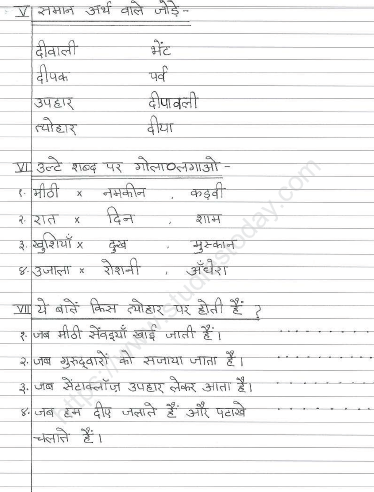 V समान अर्थ वाले जोड़े -
दीवाली भेंट
दीपक पर्व
उपहार दीपावली
त्योहार दीया
VI उल्टे शब्द पर गोला O लगाओ -
१. मीठी × नमकीन , कड़वी
२. रात × दिन , शाम
३. खुशियाँ × दुख , मुस्कान
४. उजाला × रोशनी , अँधेरा
VII ये बातें किस त्योहार पर होती हैं ?
१. जब मीठी सेंवइयाँ खाई जाती हैं।
२. जब गुरुद्वारों को सजाया जाता है।
३. जब सेंटाक्लॉज़ उपहार लेकर आता है।
४. जब हम दीए जलाते हैं और पटाखे
चलाते हैं।
https://www.studiestoday.com